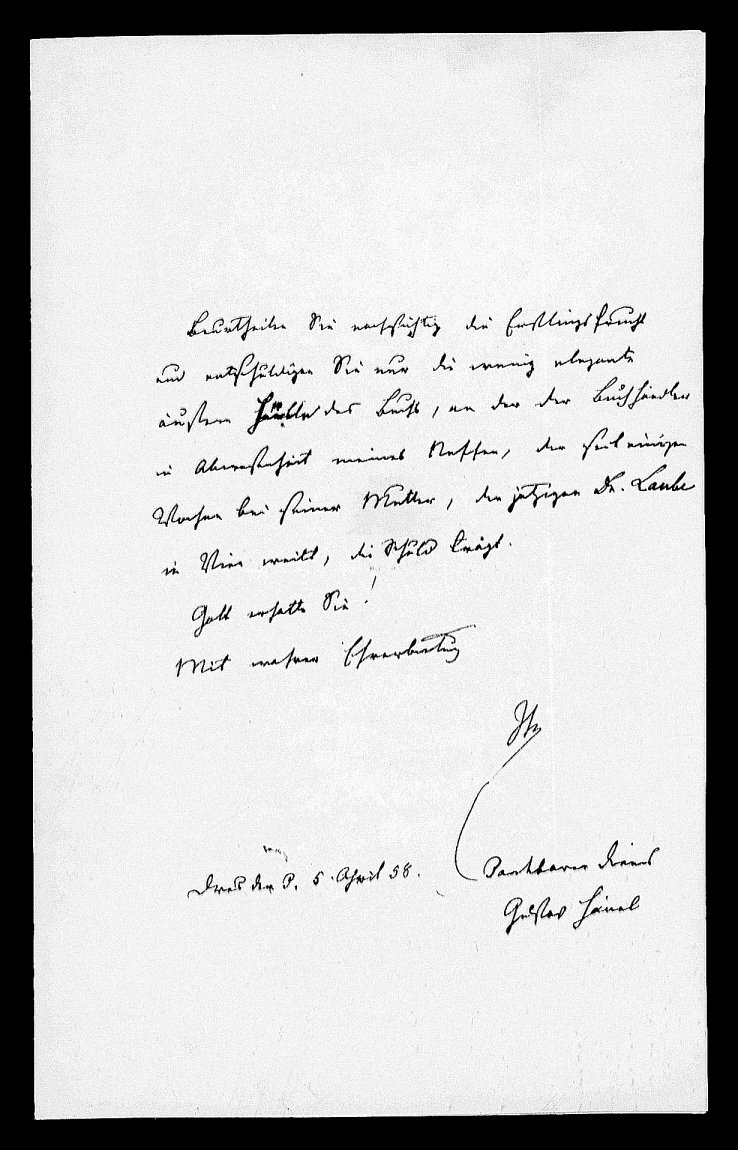 Beurtheilen Sie nachsichtig die Erstlingsfrucht
und entschuldigen Sie nur die wenig elegante
äußere Hülle des Buchs, an der der Buchhändler
in Abwesenheit meines Neffen, der seit einigen
Wochen bei seiner Mutter, der jetzigen Dr. Laube
in Wien weilt, die Schuld trägt.
Gott erhalte Sie!
Mit wahrer Ehrerbietung
Ihr
Dresden d. 5. April 58.
dankbarer
Gustav Hänel